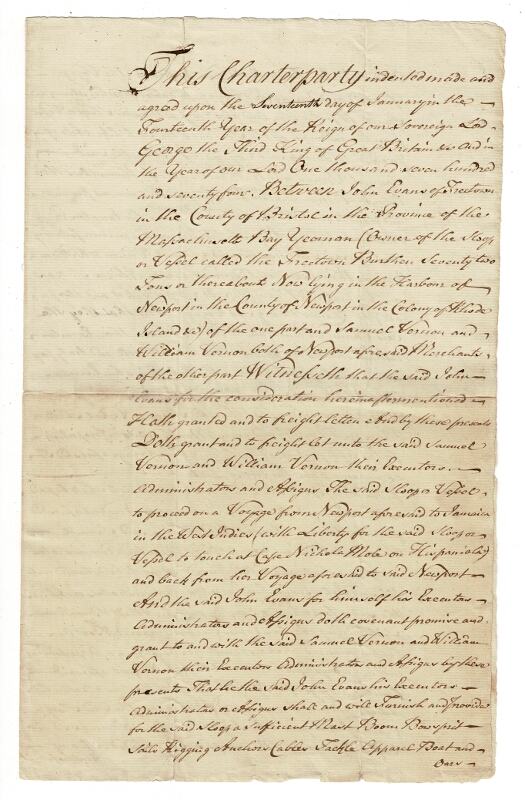 This Charterparty indented made and
agreed upon the Seventeenth day of January in the
Fourteenth Year of the Reign of our Sovereign Lord
George the Third King of Great Britain &c And in
the Year of our Lord One thousand seven hundred
and seventy four. Between John Evans of Freetown
in the County of Bristol in the Province of the
Massachusetts Bay Yeoman (Owner of the Sloop
or Vessel called the Freetown Burthen Seventy two
Tons or thereabout Now lying in the Harbour of
Newport in the County of Newport in the Colony of Rhode
Island &c) of the one part and Samuel Vernon and
William Vernon both of Newport aforesaid Merchants
of the other part Witnesseth that the said John
Evans for the consideration hereinaftermentioned
Hath granted and to freight letten And by these presents
Doth grant and to freight let unto the said Samuel
Vernon and William Vernon their Executors
Administrators and Assigns The said Sloop or Vessel
to proceed on a Voyage from Newport aforesaid to Jamaica
in the West Indies (with Liberty for the said Sloop or
Vessel to touch at Cape Nichola Mole on Hispaniola)
and back from her Voyage aforesaid to said Newport
And the said John Evans for himself his Executors
Administrators and Assigns doth covenant promise and
grant to and with the said Samuel Vernon and William
Vernon their Executors Administrators and Assigns by these
presents That he the said John Evans his Executors
Administrators or Assigns shall and will Furnish and provide
for the said Sloop a Sufficient Mast Boom Bowsprit
Sails Rigging Anchors Cables Tackle Apparel Boat and
Oars